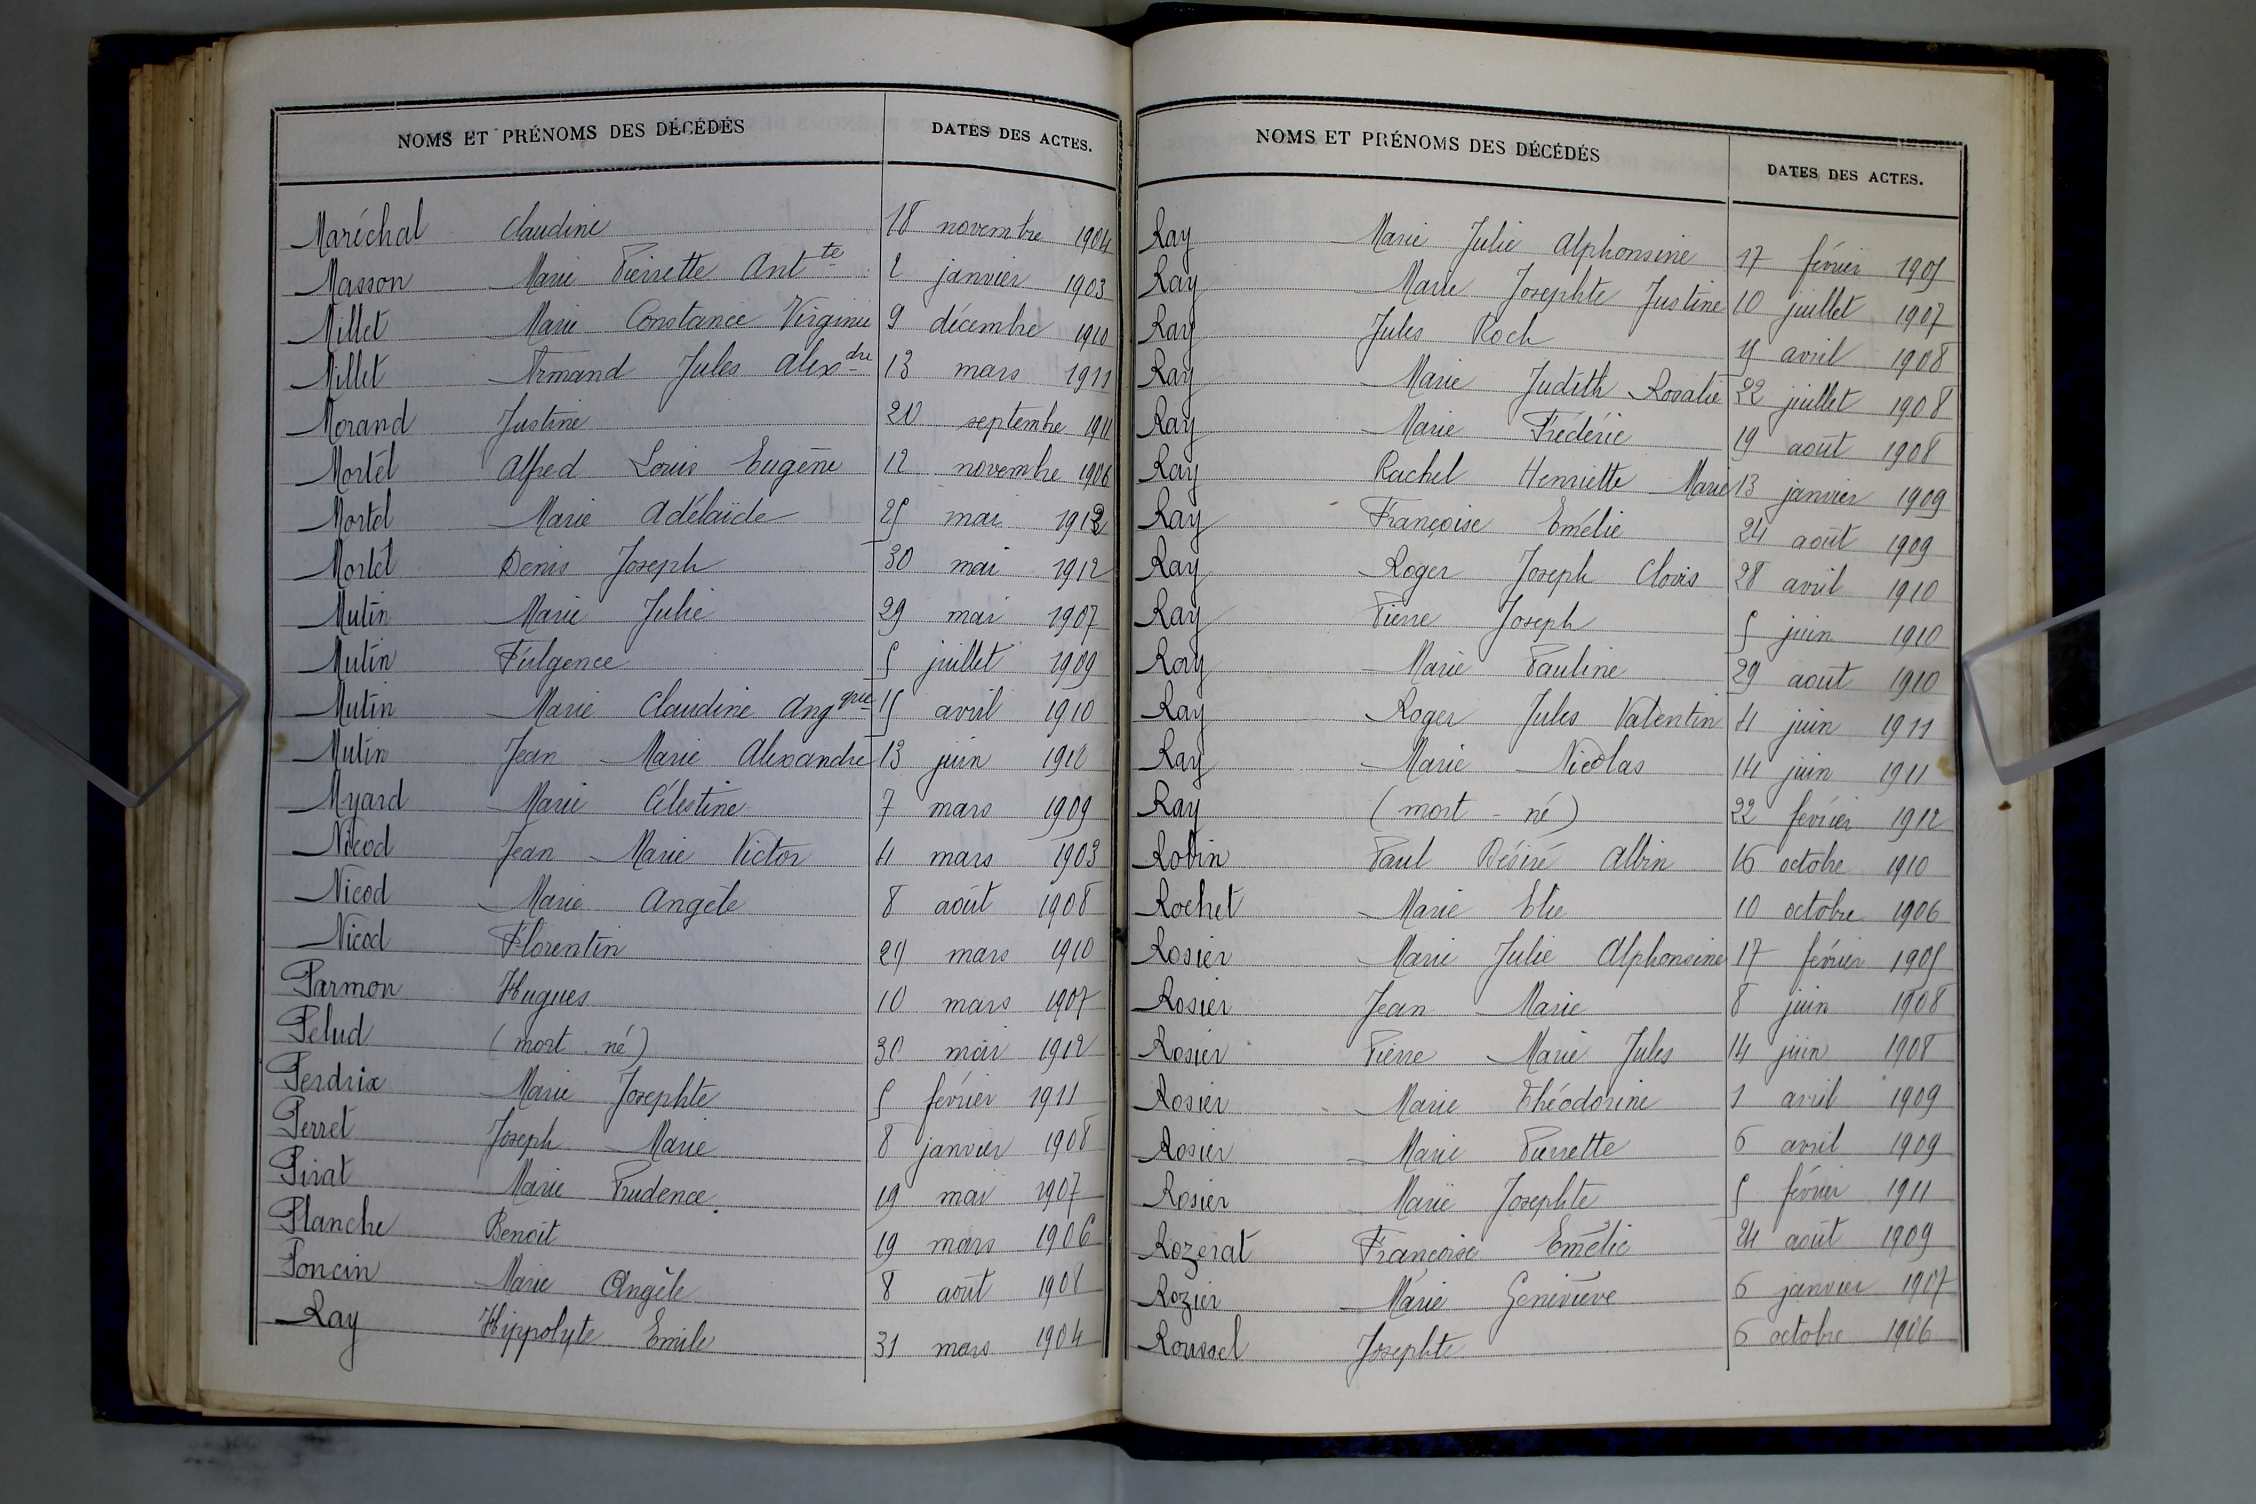 NOMS ET PRÉNOMS DES DÉCÉDÉS DATES DES ACTES.
Maréchal Claudine 18 novembre 1904
Masson Marie Pierrette Ant^te 2 janvier 1903
Millet Marie Constance Virginie 9 décembre 1910
Millet Armand Jules Alex^dre 13 mars 1911
Morand Justine 20 septembre 1911
Mortel Alfred Louis Eugène 12 novembre 1906
Mortel Marie Adélaïde 25 mai 1912
Mortel Denis Joseph 30 mai 1912
Mutin Marie Julie 29 mai 1907
Mutin Fulgence 5 juillet 1909
Mutin Marie Claudine Ang^que 15 avril 1910
Mutin Jean Marie Alexandre 13 juin 1912
Myard Marie Célestine 7 mars 1909
Nicod Jean Marie Victor 11 mars 1903
Nicod Marie Angèle 8 août 1908
Nicod Florentin mars 1910
Parmon Hugues 10 mars 1907
Pelud (mort-né) 30 mai 1912
Perdrix Marie Josephte 5 février 1911
Perret Joseph Marie 8 janvier 1908
Pirat Marie Prudence 19 mai 1907
Planche Benoît 19 mars 1906
Poncin Marie Angèle 8 août 1908
Ray Hippolyte Emile 31 mars 1904
NOMS ET PRÉNOMS DES DÉCÉDÉS DATES DES ACTES.
Ray Marie Julie Alphonsine 17 février 1905
Ray Marie Josephte Justine 10 juillet 1907
Ray Jules Roch 15 avril 1908
Ray Marie Judith Rosalie 22 juillet 1908
Ray Marie Frédéric 19 août 1908
Ray Rachel Henriette Marie 13 janvier 1909
Ray Françoise Emélie 24 août 1909
Ray Roger Joseph Clovis 28 avril 1910
Ray Pierre Joseph 5 juin 1910
Ray Marie Pauline 29 août 1910
Ray Roger Jules Valentin 11 juin 1911
Ray Marie Nicolas 14 juin 1911
Ray (mort-né) 22 février 1912
Robin Paul Désiré Albin 16 octobre 1910
Rochet Marie Elie 10 octobre 1906
Rosier Marie Julie Alphonsine 17 février 1905
Rosier Jean Marie 8 juin 1908
Rosier Pierre Marie Jules 14 juin 1908
Rosier Marie Théodorine 1 avril 1909
Rosier Marie Pierrette 6 avril 1909
Rosier Marie Josephte 5 février 1911
Rozerat Françoise Emélie 24 août 1909
Rozier Marie Geneviève 6 janvier 1907
Roussel Josephte 6 octobre 1906